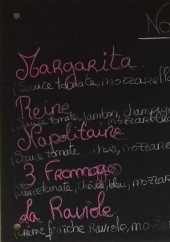 No
Margarita
(Sauce tomate, mozzarella
Reine
(Sauce tomate, jambon, champign
mozzarella
Napolitaine
(Sauce tomate mozzare
3 Fromages
(Sauce tomate, chèvre, bleu, mozzar
La Raviole
(Crème fraîche, Raviole, mozza